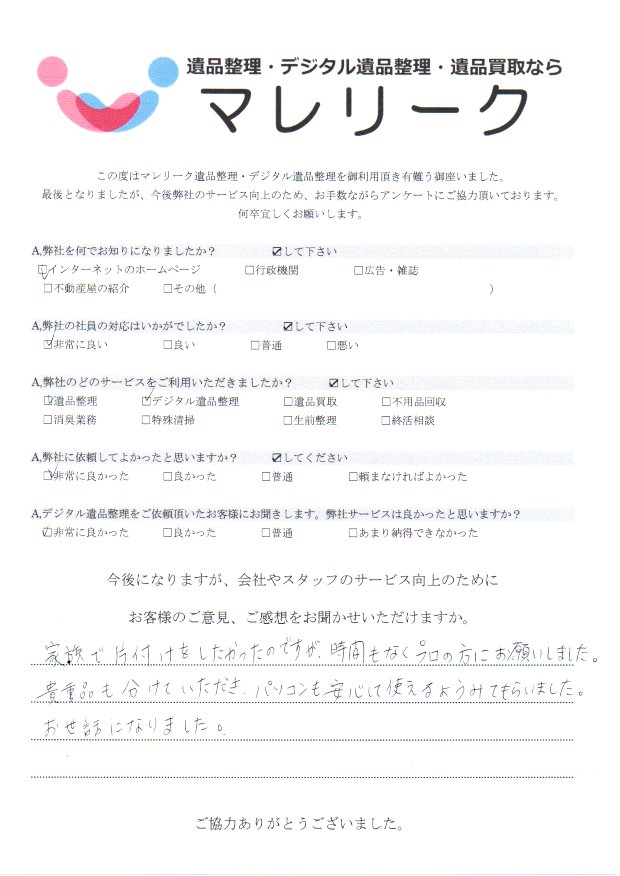 遺品整理・デジタル遺品整理・遺品買取なら
マレリーク
この度はマレリーク遺品整理・デジタル遺品整理を御利用頂き有難う御座いました。
最後となりましたが、今後弊社のサービス向上のため、お手数ながらアンケートにご協力頂いております。
何卒宜しくお願いします。
A,弊社を何でお知りになりましたか? ☑して下さい
☑インターネットのホームページ □行政機関 □広告・雑誌
□不動産屋の紹介 □その他（ ）
A,弊社の社員の対応はいかがでしたか? ☑して下さい
☑非常に良い □良い □普通 □悪い
A,弊社のどのサービスをご利用いただきましたか? ☑して下さい
☑遺品整理 ☑デジタル遺品整理 □遺品買取 □不用品回収
□消臭業務 □特殊清掃 □生前整理 □終活相談
A,弊社に依頼してよかったと思いますか? ☑してください
☑非常に良かった □良かった □普通 □頼まなければよかった
A,デジタル遺品整理をご依頼頂いたお客様にお聞きします。弊社サービスは良かったと思いますか?
☑非常に良かった □良かった □普通 □あまり納得できなかった
今後になりますが、会社やスタッフのサービス向上のために
お客様のご意見、ご感想をお聞かせいただけますか。
家族で片付けをしたかったのですが、時間もなくプロの方にお願いしました。
貴重品も分けていただき、パソコンも安心して使えるようみてもらいました。
お世話になりました。
ご協力ありがとうございました。